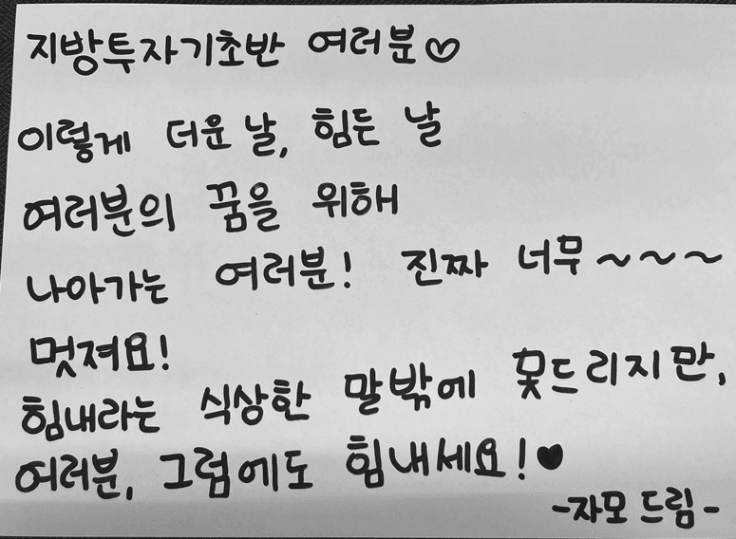 지방투자기초반 여러분♡
이렇게 더운 날, 힘든 날
여러분의 꿈을 위해
나아가는 여러분! 진짜 너무~~~
멋져요!
힘내라는 식상한 말밖에 못드리지만,
여러분, 그럼에도 힘내세요!♥
-자모 드림-